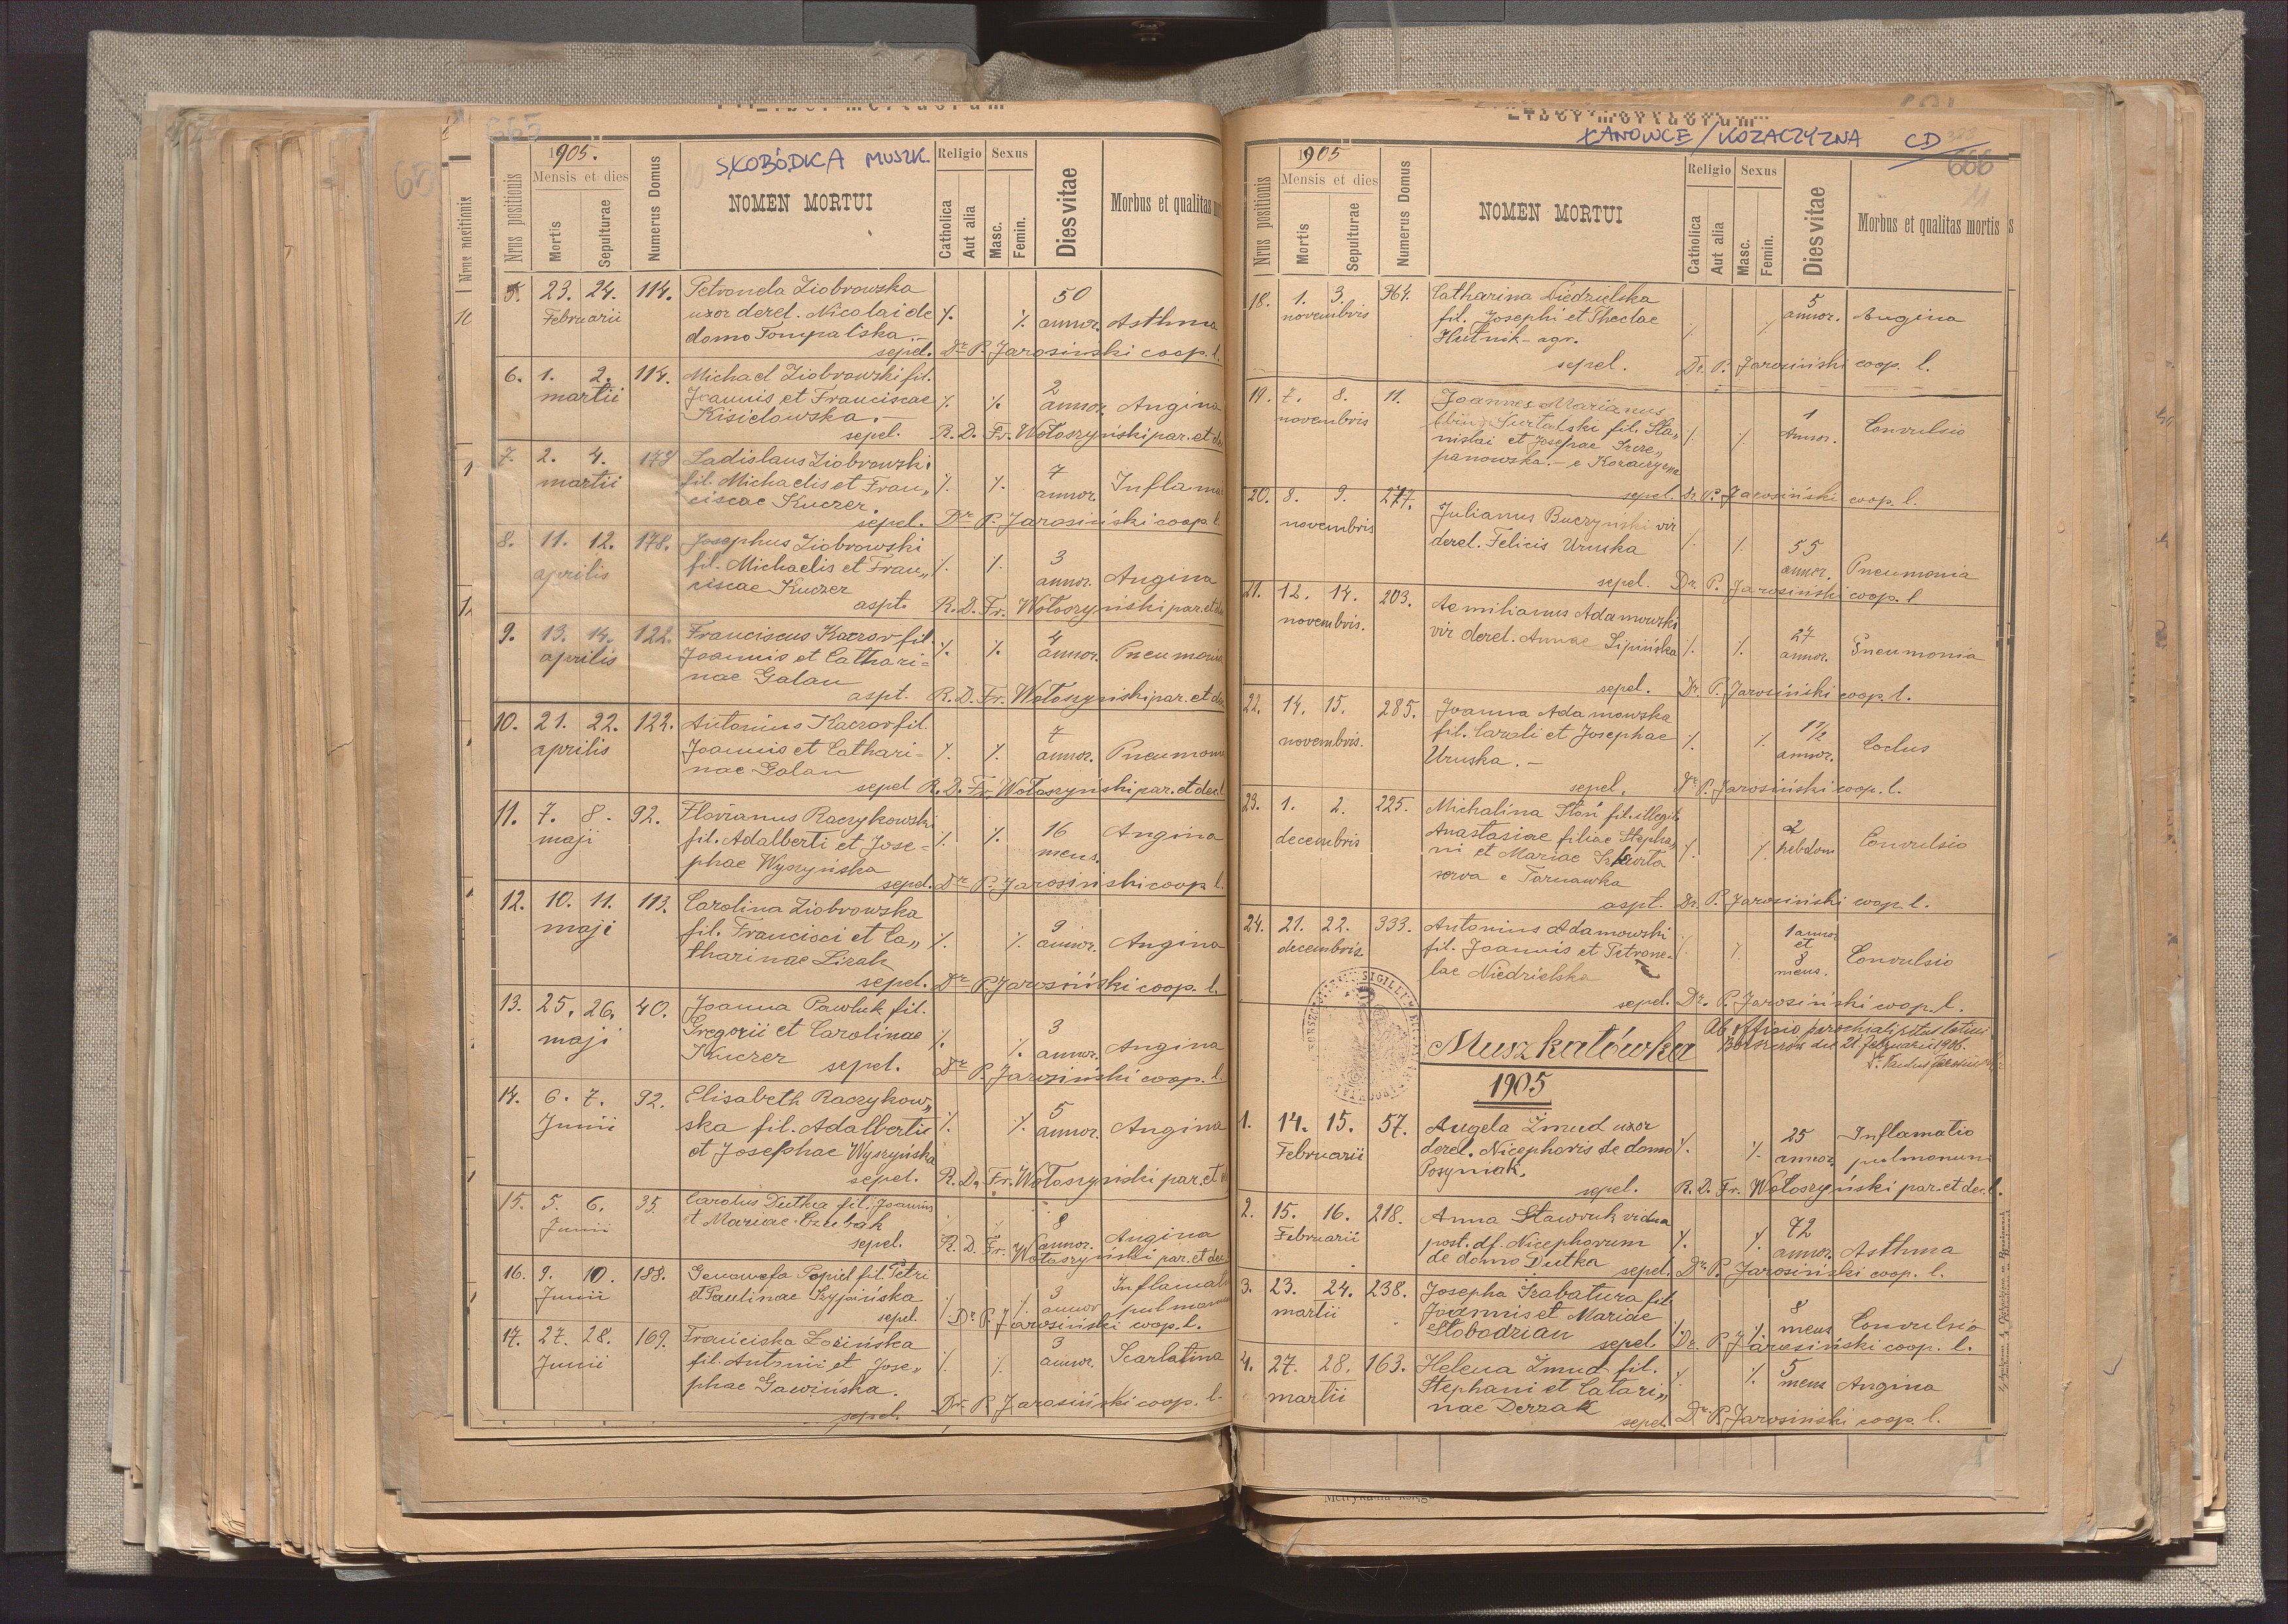 Liber mortuorum
665
1905.
SŁOBÓDKA MUSZK.
Nrus positionis
Mensis et dies
Mortis
Sepulturae
Numerus Domus
NOMEN MORTUI
Religio
Catholica
Aut alia
Sexus
Masc.
Femin.
Dies vitae
Morbus et qualitas
5. 23. 24. 114. Petronela Ziobrowska 50
Februarii uxor derel. Nicolai de % % annor. Asthma
domo Tompalska.-
sepel. Dr P. Jarosiński coop. l.
6. 1. 2. 114. Michael Ziobrowski fil. 2
martii Joannis et Franciscae % % annor. Angina
Kisielowska.-
sepel. R. D. Fr. Wołoszyński par. et
7. 2. 4. 178 Ladislaus Ziobrowski 7
martii fil. Michaelis et Fran„ % % annor. Inflama
ciscae Kuczer.
sepel. Dr P. Jarosiński coop. l.
8. 11. 12. 178. Josephus Ziobrowski 3
aprilis fil. Michaelis et Fran„ % % annor. Angina
ciscae Kuczer
aspt. R. D. Fr. Wołoszyński par. et
9. 13. 14. 122. Franciscus Kaczor fil. 4
aprilis Joannis et Cathari= % % annor. Pneumonia
nae Galan
aspt. R. D. Fr. Wołoszyński par. et
10. 21. 22. 122. Antonius Kaczor fil. 7
aprilis Joannis et Cathari- % % annor. Pneumonia
nae Galan
sepel R. D. Fr. Wołoszyński par. et dec.
11. 7. 8. 92. Florianus Raczykowski 16
maji fil. Adalberti et Jose= % % mens. Angina
phae Wyszyńska
sepel. Dr P. Jarosiński coop l.
12. 10. 11. 113. Carolina Ziobrowska 9
maji fil. Francisci et Ca„ % % annor. Angina
tharinae Lizak
sepel. Dr P. Jarosiński coop. l.
13. 25. 26. 40. Joanna Pawluk fil. 3
maji Gregorii et Carolinae % % annor. Angina
Kuczer sepel. Dr P. Jarosiński coop. l.
14. 6. 7. 92. Elisabeth Raczykow„ 5
Junii ska fil. Adalberti % % annor. Angina
et Josephae Wyszyńska
sepel. R. D. Fr. Wołoszyński par. et
15. 5. 6. 35 Carolus Dutka fil. Joannis 8
Junii et Mariae Czubak % % annor. Angina
sepel. R. D. Fr. Wołoszyński par. et dec.
16. 9. 10. 188. Genowefa Popiel fil. Petri 3 Inflamatio
Junii et Paulinae % % annor pulmonum
sepel. Dr P. Jarosiński coop. l.
17. 27. 28. 169. Franciska Łosińska 3
Junii fil. Antonii et Jose„ % % annor. Scarlatina
phae Gawińska.
sepel. Dr. P. Jarosiński coop. l.
Liber mortuorum
ŁANOWCE / KOZACZYZNA CD
666
1905
Nrus positionis
Mensis et dies
Mortis
Sepulturae
Numerus Domus
NOMEN MORTUI
Religio
Catholica
Aut alia
Sexus
Masc.
Femin.
Dies vitae
Morbus et qualitas mortis
18. 1. 3. 364. Catharina Niedzielska 5
novembris fil. Josephi et Theclae % % annor. Angina
Hutnik - agr.
sepel. Dr. P. Jarosiński coop. l.
19. 7. 8. 11. Joannes Marianus 1
novembris fil. Sta„ % % Annor. Convulsio
nislai et Josephae Szcze„
panowska.- e Kozaczyzna
sepel. Dr P. Jarosiński coop. l.
20. 8. 9. 277. Julianus Buczynski vir 55
novembris derel. Felicis Uruska % % annor. Pneumonia
sepel. Dr. P. Jarosiński coop. l
21. 12. 14. 203. Aemilianus Adamowski 27
novembris. vir derel. Annae Lipińska % % annor. Pneumonia
sepel. Dr. P. Jarosiński coop. l.
22. 14. 15. 285. Joanna Adamowska 1 1/2
novembris. fil. Caroli et Josephae % % annor. Coclus
Uruska.-
sepel. Dr P. Jarosiński coop. l.
23. 1. 2. 225. Michalina Stoń fil. illegit. 2
decembris Anastasiae filiae Stepha„ % % hebdom Convulsio
ni et Mariae
serva e Tarnawka
aspt. Dr. P. Jarosiński coop. l.
24. 21. 22. 333. Antonius Adamowski 1 annor
decembris fil. Joannis et Petrone- % % et 8 Convulsio
lae Niedzielska mens.
sepel. Dr. P. Jarosiński coop. l.
SIGILLUM
Muszkatówka
Ab officio parochiali ritus latini
Borszczów die 21. februarii 1906.
1905
1. 14. 15. 57. Angela Żmud uxor 25 Inflamatio
Februarii derel. Nicephoris de domo % % annor. pulmonum
Posyniak.
sepel. R. D. Fr. Wołoszyński par. et dec. l.
2. 15. 16. 218. Anna Stawruk vidua 72
Februarii post. df. Nicephorum % % annor. Asthma
de domo Dutka sepel. Dr. P. Jarosiński coop. l.
3. 23. 24. 238. Josepha Grabatura fil. 8
martii Joannis et Mariae % % mens Convulsio
Słobodzian sepel. Dr. P. Jarosiński coop. l.
4. 27. 28. 163. Helena Żmud fil. 5
martii Stephani et Catari„ % % mens Angina
nae Derzak
sepel. Dr. P. Jarosiński coop. l.